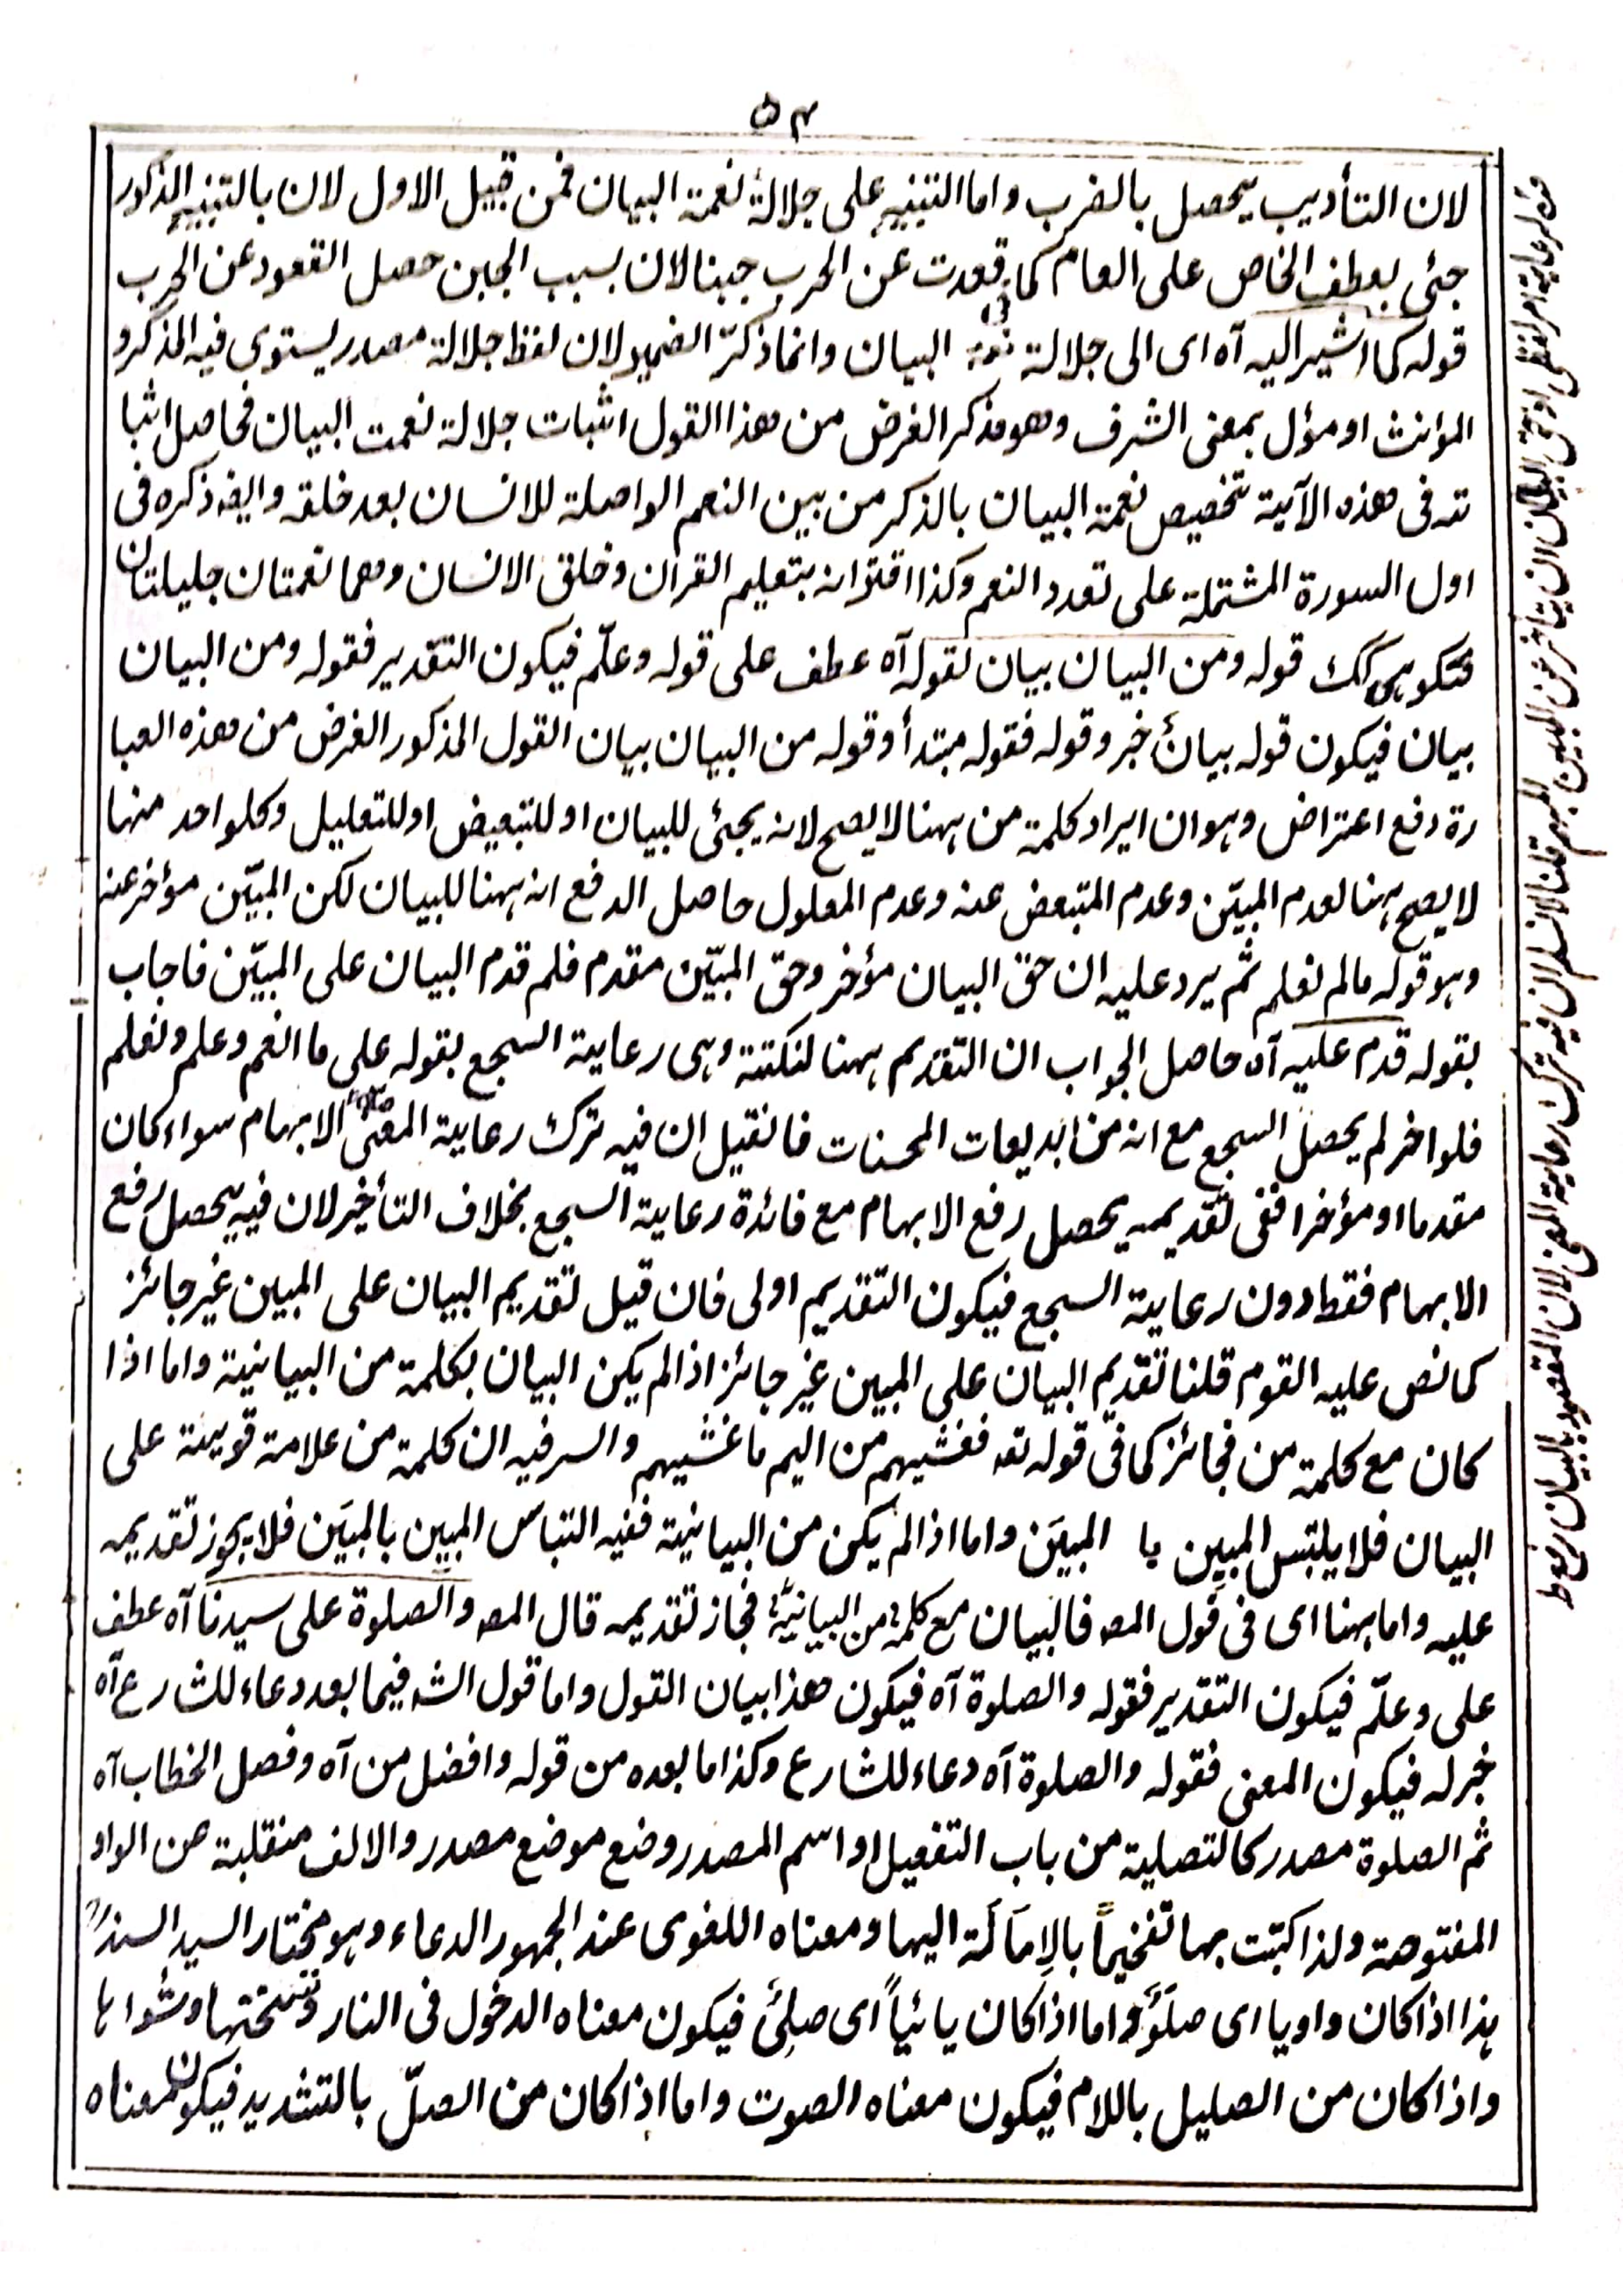 ۵۴
لان التأديب يحصل بالضرب واما التنبيه على جلالة نعمة البيان فمن قبيل الاول لان بالتنبيه المذكور
جئی بعطف الخاص على العام كما قعدت عن الحرب جبنا لان بسبب الجبن حصل القعود عن الحرب
قوله كما اشير اليه آه اى الى جلالة نعمة البيان وانما ذكّر الضمير لان لفظ جلالة مصدر يستوى فيه المذكر و
المؤنث او مؤل بمعنى الشرف وهو مذكر الغرض من هذا القول اثبات جلالة نعمت البيان فحاصل اثبا
ته فى هذه الآية تخصيص نعمة البيان بالذكر من بين النعم الواصلة للانسان بعد خلقه وايضه ذكره فى
اول السورة المشتملة على تعدد النعم وكذا اقترانه بتعليم القرآن وخلق الانسان وهما نعمتان جليلتان
فتكو هى كك قوله ومن البيان بيان لقوله آه عطف على قوله وعلّم فيكون التقدير فقوله ومن البيان
بيان فيكون قوله بيانٌ خبر وقوله فقوله مبتدأ وقوله من البيان بيان القول المذكور الغرض من هذه العبا
رة دفع اعتراض وہو ان ايراد كلمة من ہہنا لا يصح لانه يجئى للبيان او للتبعيض او للتعليل وكلواحد منها
لا يصح ہہنا لعدم المبيّن وعدم المتبعض عنه وعدم المعلول حاصل الدفع انه ہہنا للبيان لكن المبيّن مؤخر عنه
وہو قوله مالم نعلم ثم يرد عليه ان حق البيان مؤخر وحق المبيّن مقدم فلم قدم البيان على المبيّن فاجاب
بقوله قدم عليه آه حاصل الجواب ان التقديم ہہنا لنكتة وہى رعاية السجع بقوله على ما انعم وعلم ونعلم
فلو اخر لم يحصل السجع مع انه من البديعات المحسنات فانقيل ان فيه ترك رعاية المعنى الابہام سواء كان
مقدما او مؤخرا ففى تقديمه يحصل رفع الابہام مع فائدة رعاية السجع بخلاف التأخير لان فيه يحصل رفع
الابہام فقط دون رعاية السجع فيكون التقديم اولى فان قيل تقديم البيان على المبين غير جائز
كما نص عليه القوم قلنا تقديم البيان على المبين غير جائز اذا لم يكن البيان بكلمة من البيانية واما اذا
كان مع كلمة من فجائز كما فى قوله تعه فغشيهم من اليم ما غشيهم والسر فيه ان كلمة من علامة قوية على
البيان فلا يلتبس المبيِن با المبيَن واما اذا لم يكن من البيانية ففيه التباس المبيِن بالمبيَن فلا يجوز تقديمه
عليه واما ہہنا اى فى قول المصه فالبيان مع كلمة من البيانية فجاز تقديمه قال المصه والصلوة على سيدنا آه عطف
على وعلّم فيكون التقدير فقوله والصلوة آه فيكون هذا بيان القول واما قول الشه فيما بعد دعاء للشارع آه
خبر له فيكون المعنى فقوله والصلوة آه دعاء للشارع وكذا ما بعده من قوله وافضل من آه وفصل الخطاب آه
ثم الصلوة مصدر كالتصلية من باب التفعيل او اسم المصدر وضع موضع مصدر والالف منقلبة عن الواو
المفتوحة ولذا كتبت بہا تفخيماً بالاِمَالَة اليہا ومعناه اللغوى عند الجمہور الدعاء وہو مختار السيد السند
ہذا اذا كان واويا اى صلَوَ واما اذا كان يائياً اى صلِىَ فيكون معناه الدخول فى النار وتسختها وشواہا
واذا كان من الصليل باللام فيكون معناه الصوت واما اذا كان من الصلّ بالتشديد فيكون معناه
قوله رعاية امر لفظى اذ حق البيان ان يتأخر عن المبين المبهم قلنا لا نسلم ان فيه ترك رعاية المعنى لان المقصود بالبيان رفع